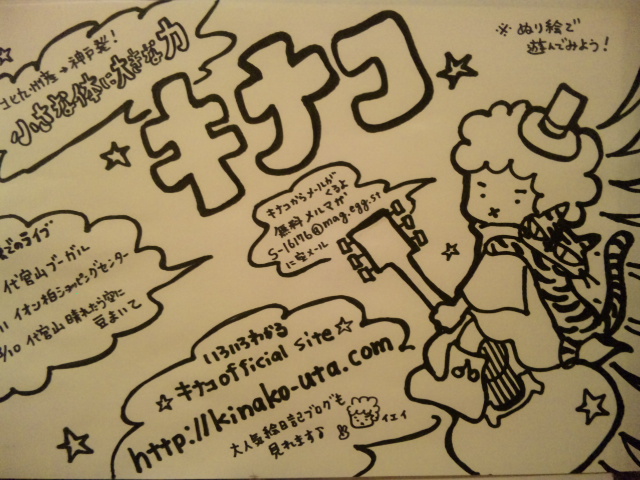 ※ぬり絵で
遊んでみよう!
神戸発!
小さな体に大きな力
キナコ
キナコからメールが
くるよ
無料メルマガ
S-16176@mag.egg.st
に空メール
でのライブ
代官山ブーガル
イオン柏ショッピングセンター
/10 代官山 晴れたら空に
豆まいて
いろいろわかる
☆キナコofficial site☆
http://kinako-uta.com
大人気絵日記ブログも
見れます♪
イエイ